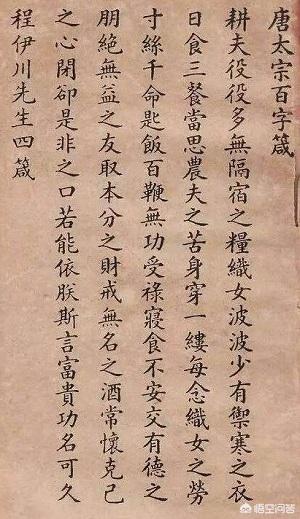 唐太宗百字箴
耕夫役役多無隔宿之糧織女波波少有禦寒之衣
日食三餐當思農夫之苦身穿一縷每念織女之勞
寸絲千命匙飯百鞭無功受祿寢食不安交有德之
朋絕無益之友取本分之財戒無名之酒常懷克己
之心閉卻是非之口若能依朕斯言富貴功名可久
程伊川先生四箴
悟空问答